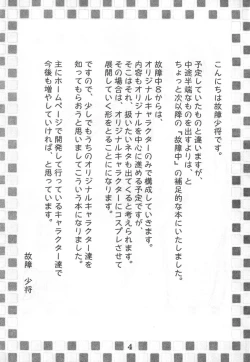 こんにちは故障少将です。
予定していたものと違いますが、
中途半端なものを出すよりは、と
ちょっと次以降の『故障中』の補足的な本にいたしました。
故障中8からは、
オリジナルキャラクターのみで構成していきます。
内容もオリジナルを中心に進める予定ですが、
そこはそれ、扱いたいネタも出てくると考えられます。
その場合は、オリジナルキャラクターにコスプレさせて
展開していく形をとることになります。
ですので、少しでもうちのオリジナルキャラクター達を
知ってもらおうと思いましてこういう本になりました。
主にホームページで開発して行っているキャラクター達で
今後も増やしていければ、と思っています。
故障 少将
4